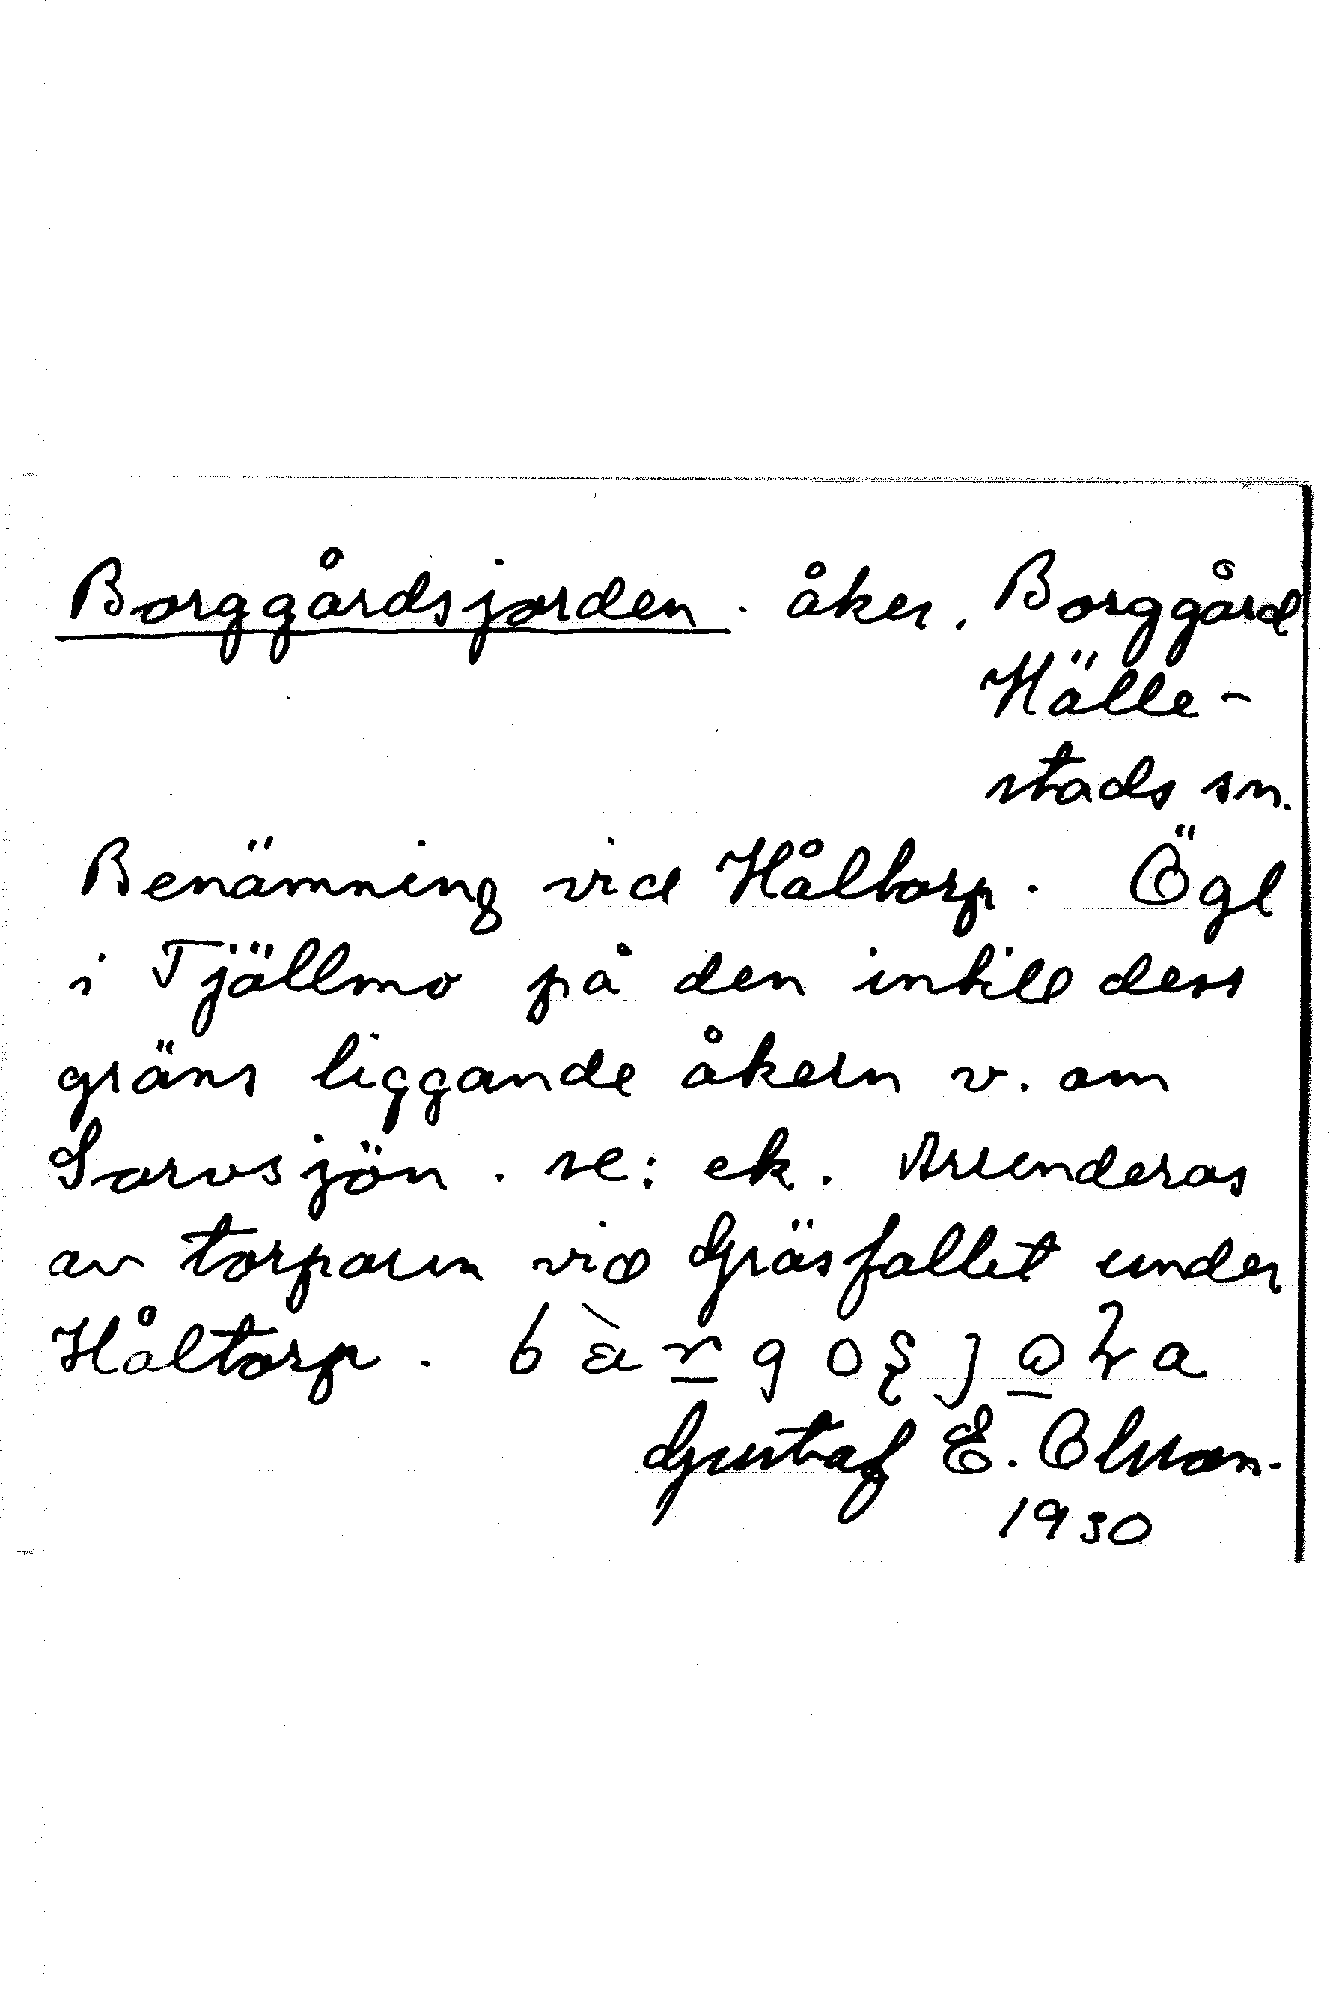 Borggårdsjorden. åker. Borggård
Hälle-
stads sn.
Benämning vid Håltorp. Ögl
i Tjällmo på den intill dess
gräns liggande åkern v. om
Sarvsjön. se: ek. Arrenderas
av torparen vid Gräsfallet under
Håltorp.
Gustaf E. Olsson.
1930